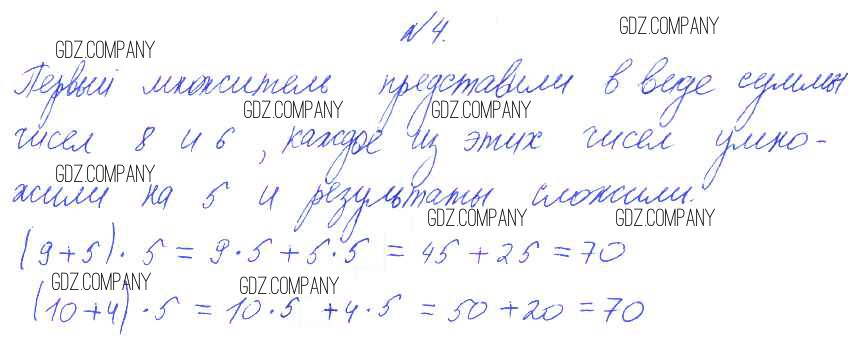 №4.
Первый множитель представили в виде суммы
чисел 8 и 6, каждое из этих чисел умно-
жили на 5 и результаты сложили.
(9+5)·5=9·5+5·5=45+25=70
(10+4)·5=10·5+4·5=50+20=70
GDZ.COMPANY
GDZ.COMPANY
GDZ.COMPANY
GDZ.COMPANY
GDZ.COMPANY
GDZ.COMPANY
GDZ.COMPANY
GDZ.COMPANY
GDZ.COMPANY